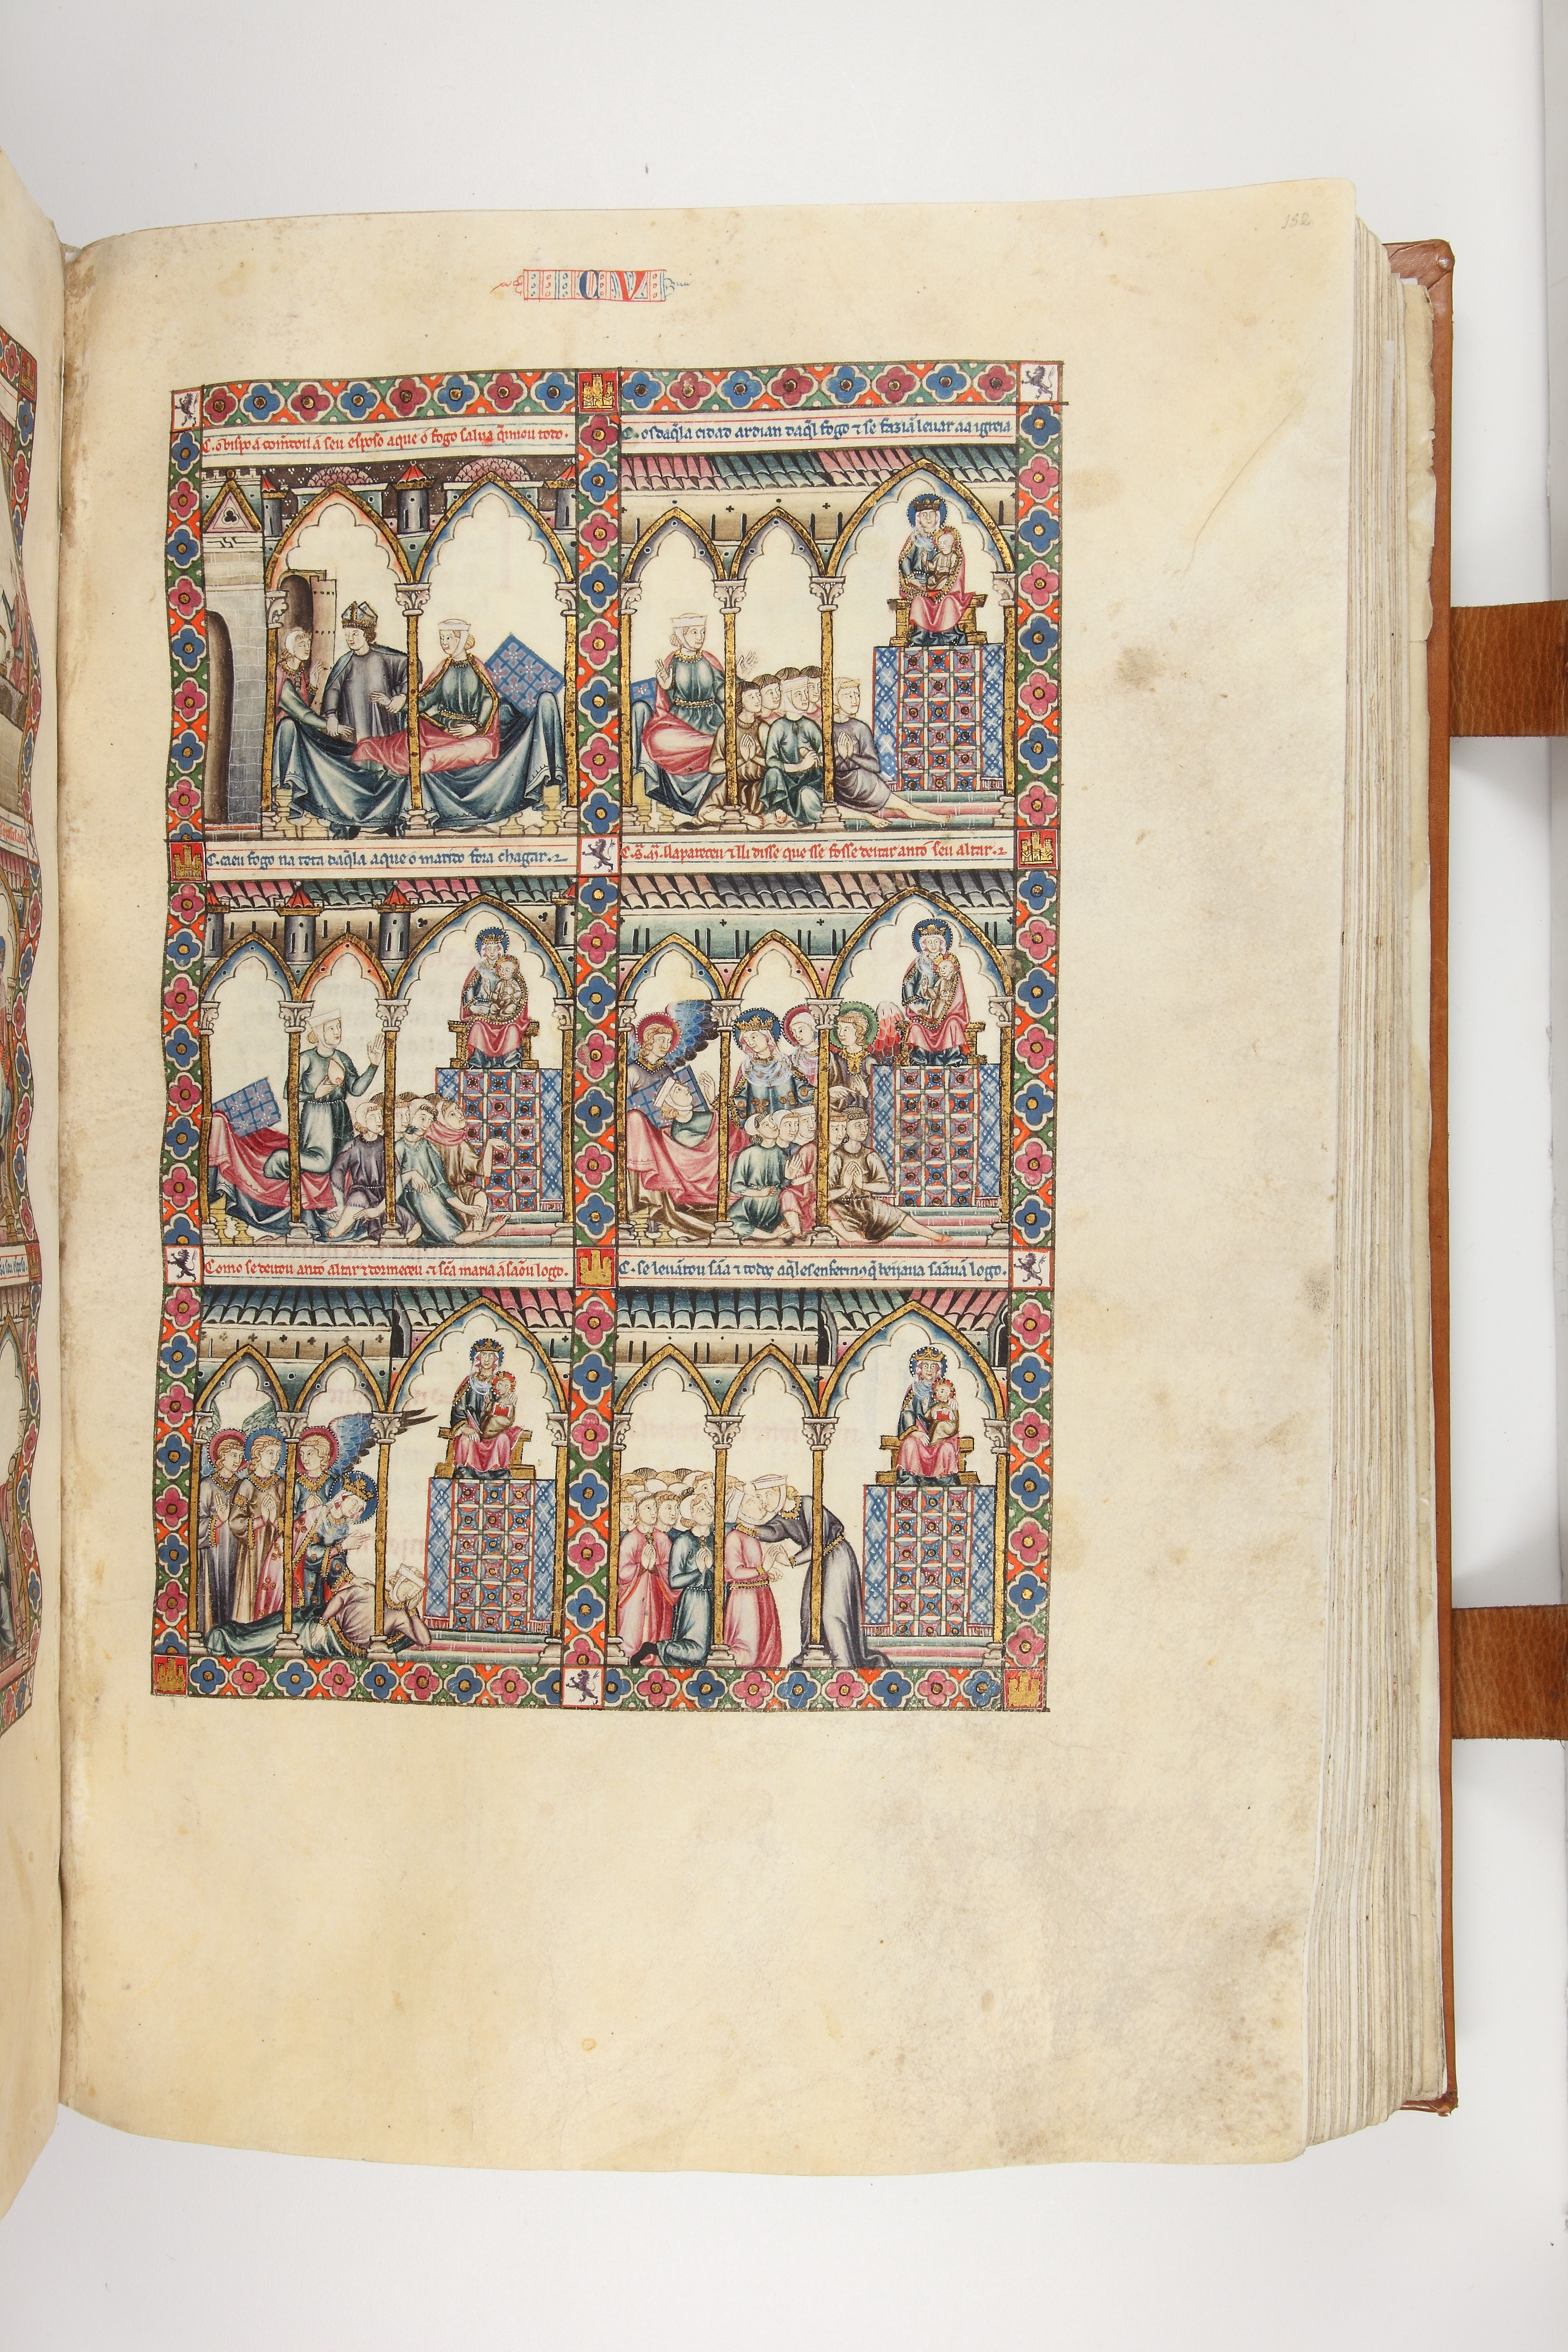 152
CV
C. o bispo a com̄dou a seu esposo a que o fogo saluaj q̄imou todo.
C. os daq̄la cidad ardian daq̄l fogo ⁊ se fazian leuar aa igreia
C. caeu fogo na teta daq̄la a que o marido fora chagar.
C. s. m. ll apareceu ⁊ lli disse que sse fosse deitar anto seu altar.
Como se deitou anto altar ⁊ dormeceu ⁊ scā maria a saou logo.
C. se leuantou sāa ⁊ todos aq̄les enfermos q̄ beijaua saauā logo.